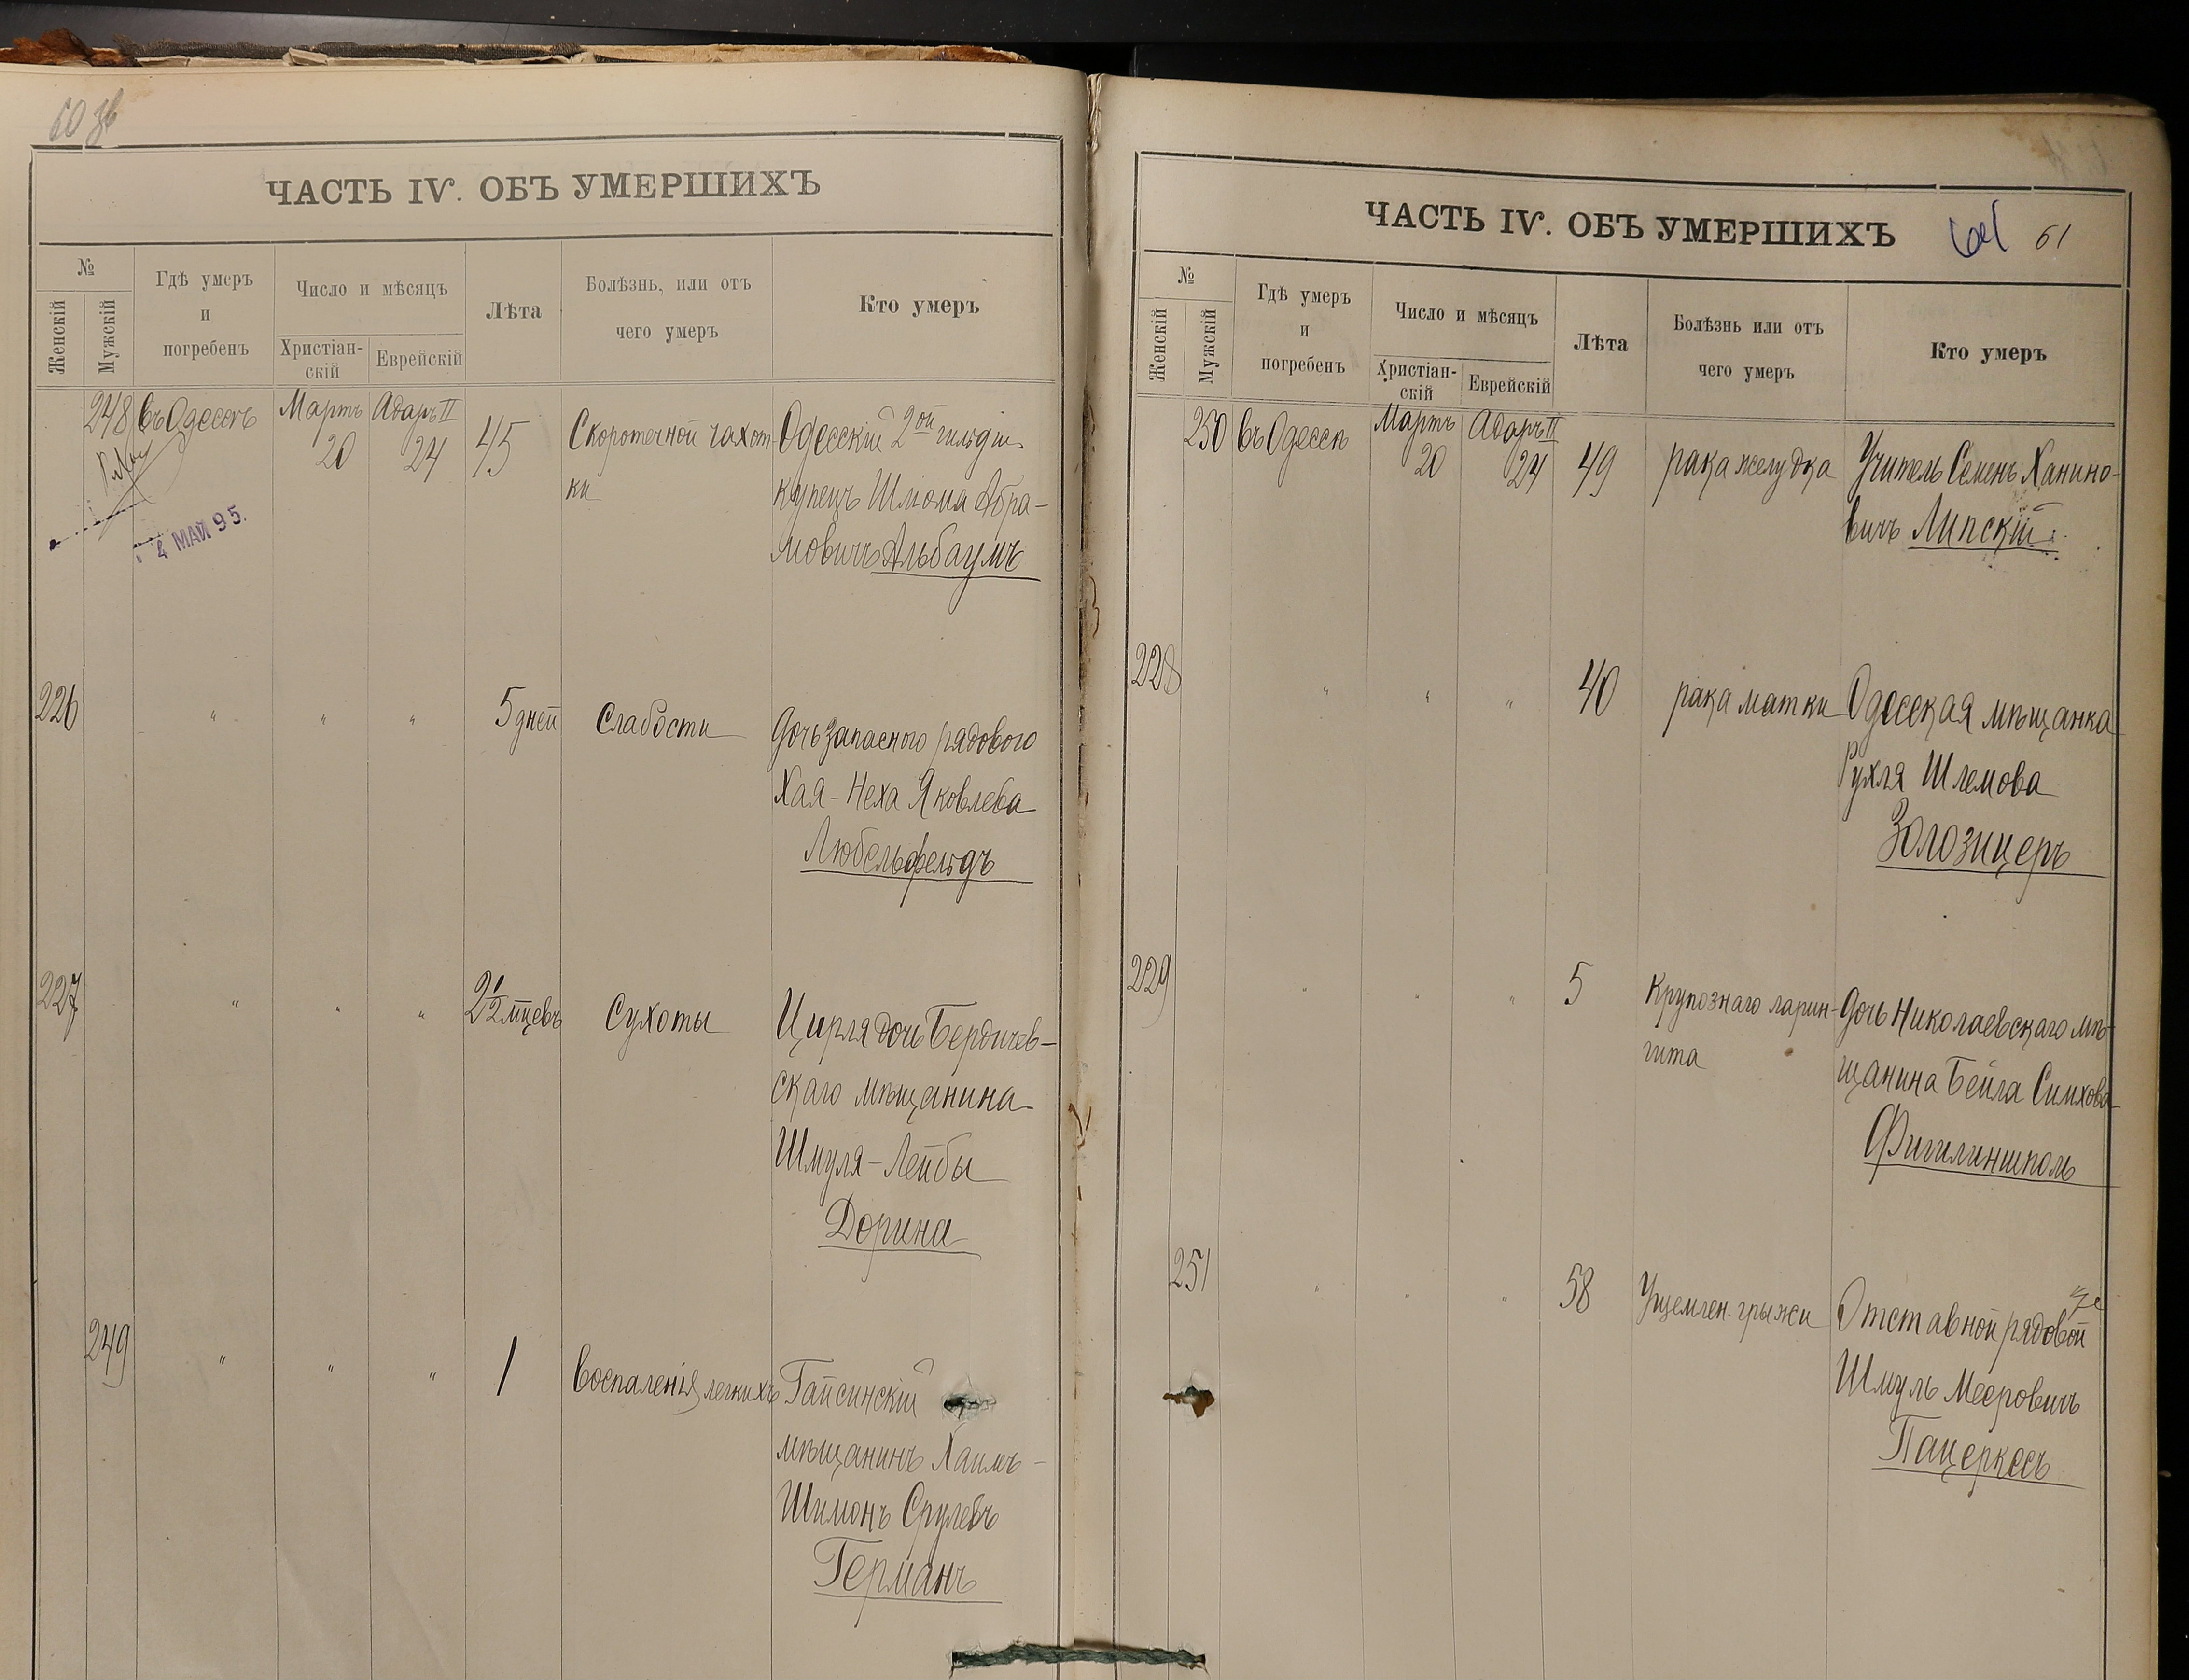 60 зв
ЧАСТЬ IV. ОБЪ УМЕРШИХЪ
№
Женскій
Мужскій
Гдѣ умеръ
и
погребенъ
Число и мѣсяцъ
Христіан-
скій
Еврейскій
Лѣта
Болѣзнь, или отъ
чего умеръ
Кто умеръ
248 въ Одессѣ Мартъ 20 Адаръ II 24 45 Скоротечной чахот-
ки
Одесскій 2ой гильдіи
купецъ Шлюма Абра-
мовичъ Альбаумъ
4 МАЙ 95.
226 " " " 5 дней Слабости Дочь запасного рядового
Хая-Неха Яковлева
Любельфельдъ
227 " " " 2 1/2 мцевъ Сухоты Цирля дочь Бердичев-
скаго мѣщанина
Шмуля-Лейбы
Дорина
249 " " " 1 Воспаленія легкихъ Гайсинскій
мѣщанинъ Хаимъ-
Шимонъ Срулевъ
Германъ
ЧАСТЬ IV. ОБЪ УМЕРШИХЪ
61
№
Женскій
Мужскій
Гдѣ умеръ
и
погребенъ
Число и мѣсяцъ
Христіан-
скій
Еврейскій
Лѣта
Болѣзнь или отъ
чего умеръ
Кто умеръ
250 въ Одессѣ Мартъ 20 Адаръ II 24 49 рака желудка Учитель Семенъ Ханино-
вичъ Липскій
228 " " " 40 рака матки Одесская мѣщанка
Рухля Шлемова
Золозицеръ
229 " " " 5 Крупознаго ларин-
гита
Дочь Николаевскаго мѣ-
щанина Бейла Симхова
Фигилиншполь
251 " " " 58 Ущемлен. грыжи Отставной рядовой
Шмуль Мееровичъ
Пацеркесъ